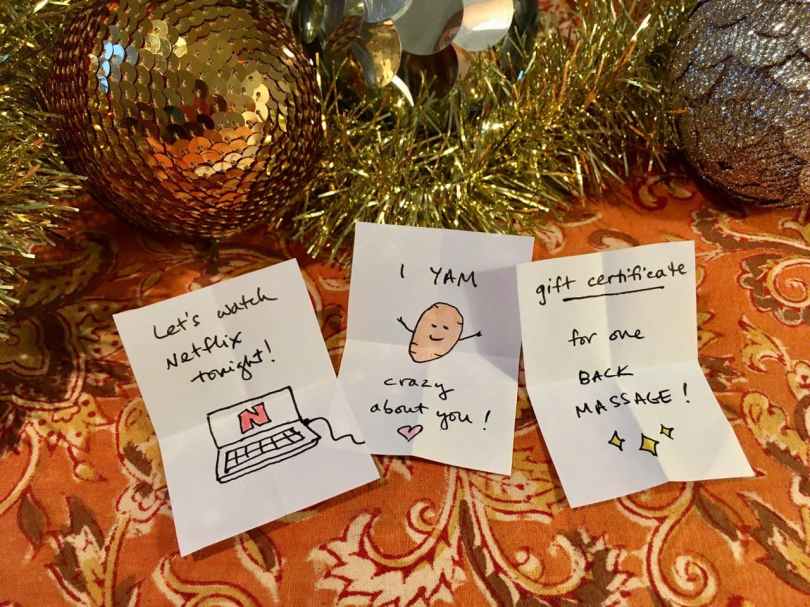 Let's watch
Netflix
tonight!
N
I YAM
crazy
about you!
gift certificate
for one
BACK
MASSAGE!